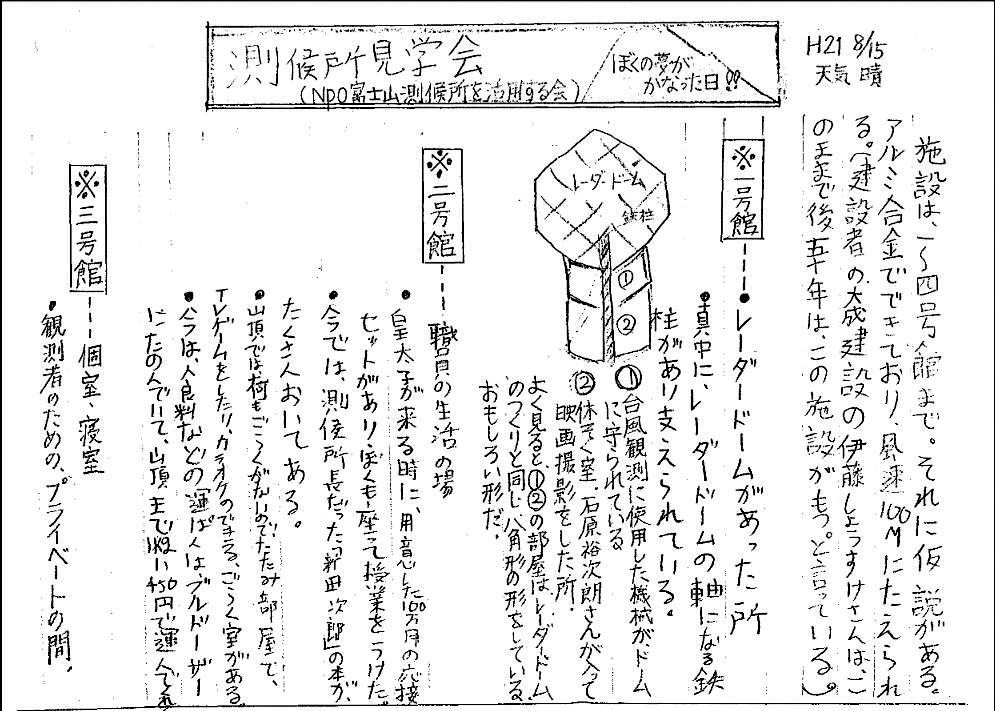 測候所見学会
(NPO富士山測候所を活用する会)
ぼくの夢が
かなった日!!
H21 8/15
天気 晴
施設は、1~四号館まで。それに仮説がある。
アルミ合金でできており、風速100Mにたえられ
る。(建設者の大成建設の伊藤しょうすけさんは、こ
のままで後五十年は、この施設がもつ。と言っている。)
※一号館---●レーダードームがあった所
●真中に、レーダードームの軸になる鉄
柱があり支えられている。
レーダードーム
鉄柱
①
②
①台風観測に使用した機械が、ドーム
に守られている
②休けい室、石原裕次朗さんが入って
映画撮影をした所。
よく見ると①②の部屋はレーダードーム
のつくりと同じ八角形の形をしている。
おもしろい形だ。
※二号館---職員の生活の場
●皇太子が来る時に、用意した100万円の応接
セットがあり、ぼくも座って授業をうけた。
●今では、測候所長だった「新田次郎」の本が、
たくさんおいてある。
●山頂では何もごらくがないのでたたみ部屋で、
テレビゲームをしたり、カラオケのできる、ごらく室がある。
●今は、食料などの「運ぱん」はブルドーザー
にたのんでいて、山頂まで1kg 450円で運んでくれ
※三号館---個室、寝室
●観測者のための、プライベートの間。